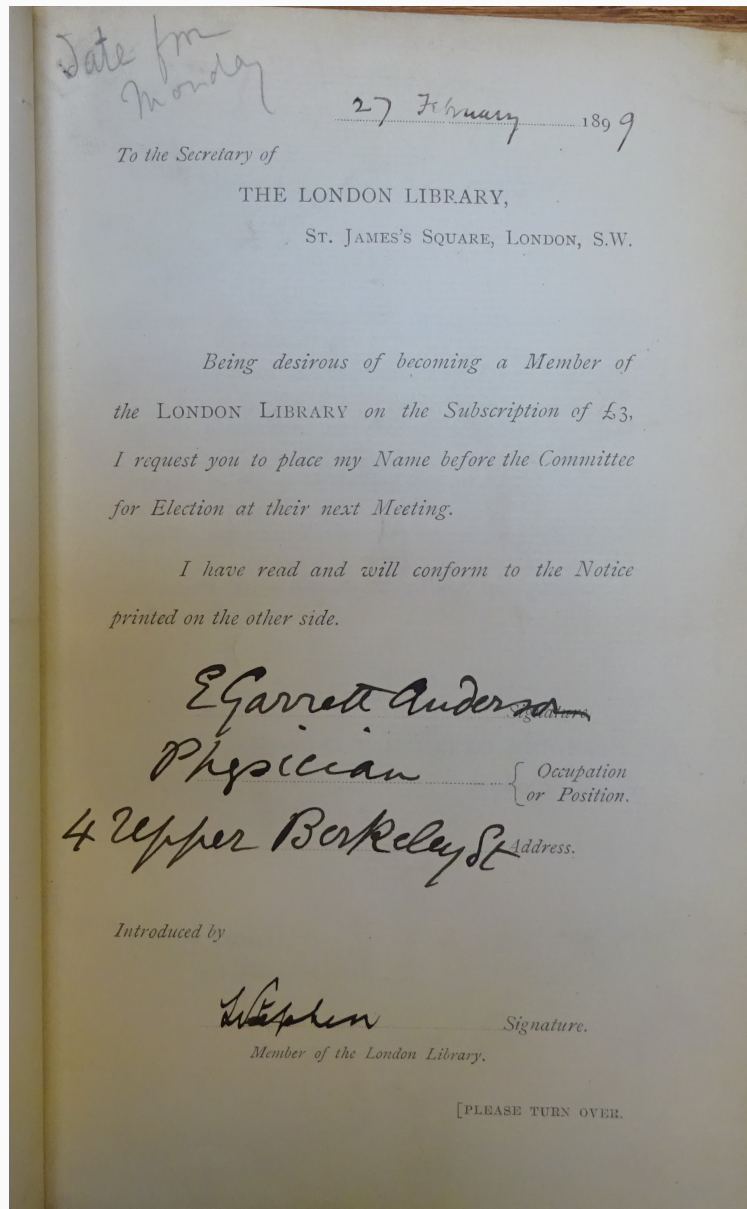 Date from
Monday
27 February 1899
To the Secretary of
THE LONDON LIBRARY,
ST. JAMES'S SQUARE, LONDON, S.W.
Being desirous of becoming a Member of
the LONDON LIBRARY on the Subscription of £3,
I request you to place my Name before the Committee
for Election at their next Meeting.
I have read and will conform to the Notice
printed on the other side.
E Garrett Anderson Signature
Physician { Occupation
or Position.
4 Upper Berkeley St Address.
Introduced by
L Stephen Signature.
Member of the London Library.
[PLEASE TURN OVER.